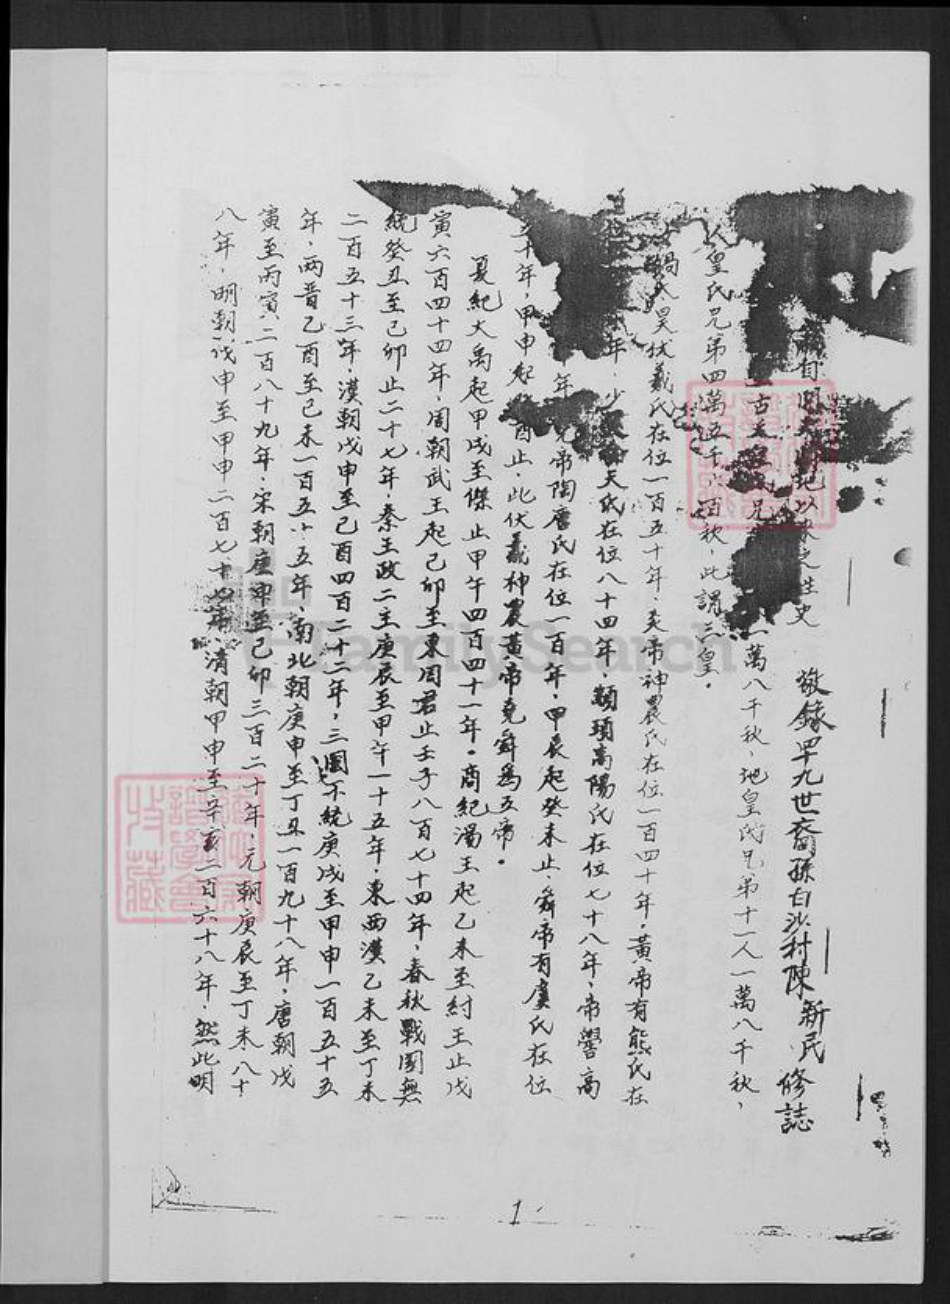 有開天闢地以來之歷史 敬錄四十九世裔孫白沙村陳新民修誌
古天皇氏兄 一萬八千秋，地皇氏兄弟十一人一萬八千秋，
人皇氏兄弟四萬五千六百秋，此謂三皇。
太昊伏羲氏在位一百五十年，炎帝神農氏在位一百四十年，黃帝有熊氏在
年，少 天氏在位八十四年，顓頊高陽氏在位七十八年，帝嚳高
年，堯帝陶唐氏在位一百年，甲辰起癸未止，舜帝有虞氏在位
十年，甲申起 酉止，此伏羲神農黃帝堯舜為五帝。
夏紀大禹起甲戌至傑止甲午四百四十一年。商紀湯王起乙未至紂王止戊
寅六百四十四年，周朝武王起己卯至東周君止壬子八百七十四年，春秋戰國無
統癸丑至己卯止二十七年，秦王政二主庚辰至甲午一十五年，東西漢乙未至丁未
二百五十三年，漢朝戊申至己酉四百二十二年，三國不統庚戌至甲申一百五十五
年，兩晋乙酉至己未一百五十五年，南北朝庚申至丁丑一百九十八年，唐朝戊
寅至丙寅二百八十九年，宋朝庚申至己卯三百二十年，元朝庚辰至丁未八十
八年，明朝戊申至甲申二百七十七年，清朝甲申至辛亥二百六十八年 然此明
1
FamilySearch